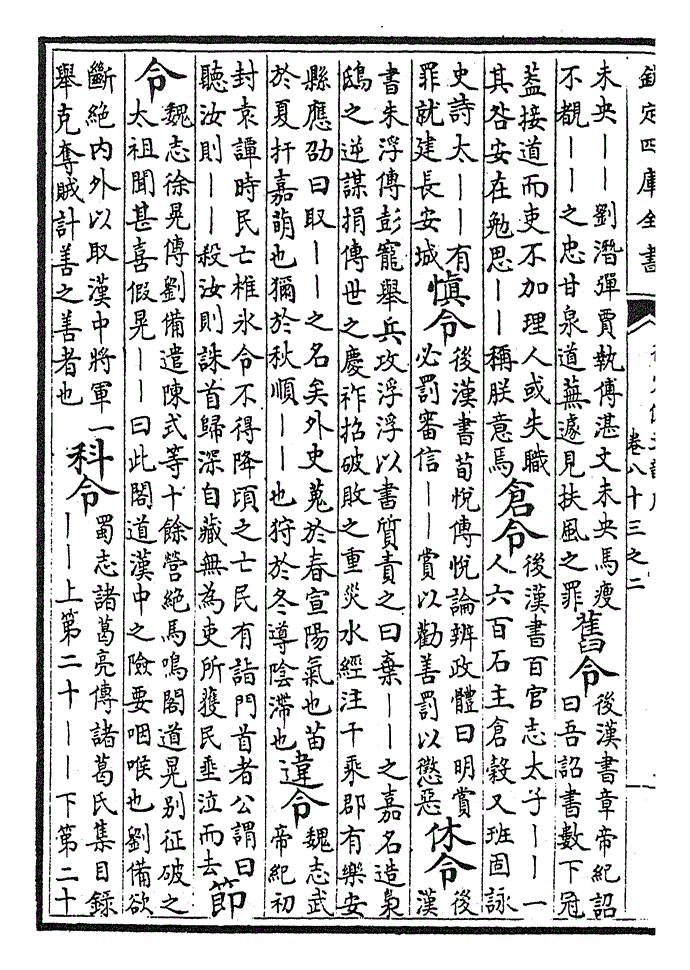 欽定四庫全書
卷八十三之二
未央——劉潛彈賈執傅湛文未央馬瘦
不覩——之忠甘泉道蕪遽見扶風之罪
舊令
後漢書章帝紀詔
曰吾詔書數下冠
葢接道而吏不加理人或失職
其咎安在勉思——稱朕意焉
倉令
後漢書百官志太子——一
人六百石主倉穀又班固詠
史詩太——有
罪就建長安城
慎令
後漢書荀悅傳悅論辨政體曰明賞
必罰審信——賞以勸善罰以懲惡
休令
後
漢
書朱浮傳彭寵舉兵攻浮浮以書質責之曰棄——之嘉名造梟
鴟之逆謀捐傳世之慶祚招破敗之重災水經注千乘郡有樂安
縣應劭曰取——之名矣外史蒐於春宣陽氣也苗
於夏扞嘉萌也獮於秋順——也狩於冬遵陰滯也
違令
魏志武
帝紀初
封袁譚時民亡椎氷令不得降頃之亡民有詣門首者公謂曰
聽汝則——殺汝則誅首歸深自藏無為吏所獲民垂泣而去
節
令
魏志徐晃傳劉備遣陳式等十餘營絶馬鳴閣道晃别征破之
太祖聞甚喜假晃——曰此閣道漢中之險要咽喉也劉備欲
斷絶內外以取漢中將軍一
舉克奪賊計善之善者也
科令
蜀志諸葛亮傳諸葛氏集目録
——上第二十——下第二十